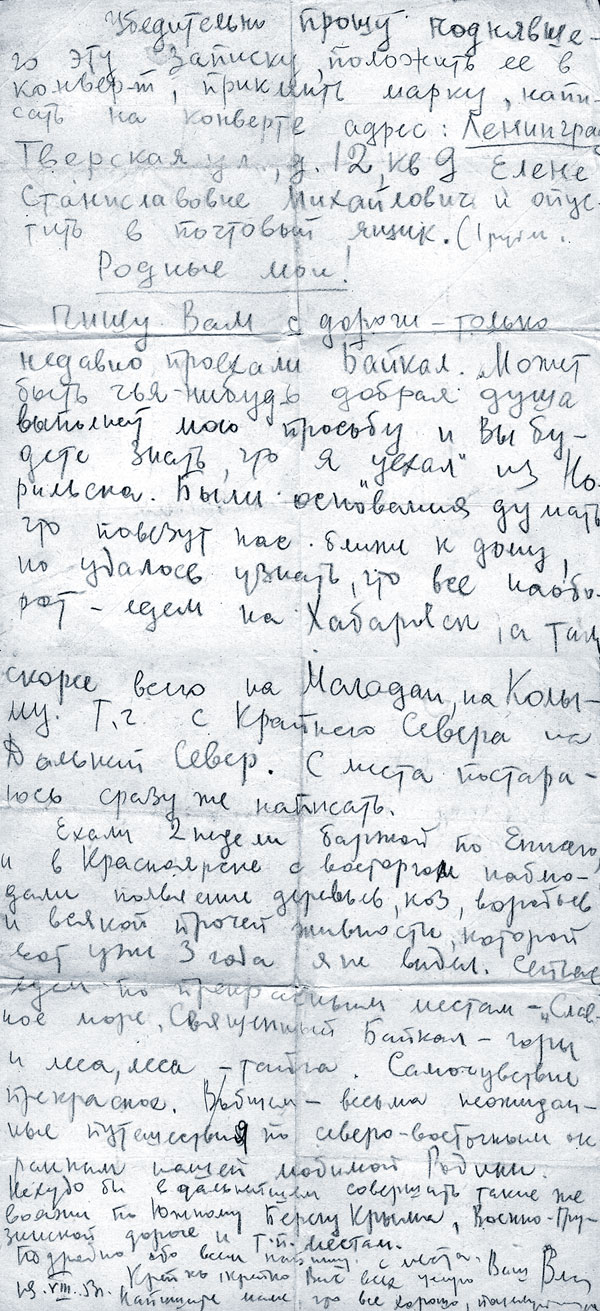 Убедительно прошу поднявше-
го эту записку, положить ее в
конверт, приклеить марку, напи-
сать на конверте адрес: Ленинград
Тверская ул., д. 12, кв 9 Елене
Станиславовне Михайлович и опус-
тить в почтовый ящик.
Родные мои!
Пишу Вам с дороги - только
недавно проехали Байкал. Может
быть чья-нибудь добрая душа
выполнит мою просьбу и вы бу-
дете знать, что я "уехал" из Но-
рильска. Были основания думать
что повезут нас ближе к дому,
но удалось узнать, что все наобо-
рот - едем на Хабаровск, а там
скорее всего на Магадан, на Колы-
му. Т.е. с Крайнего Севера на
Дальний Север. С места постара-
юсь сразу же написать.
Ехали 2 недели баржой по Енисею
и в Красноярске с восторгом наблю-
дали появление деревьев, коз, воробьев
и всякой прочей живности, которой
вот уже 3 года я не видел. Сейчас
едем по прекрасным местам - "Слав-
ное море, Священный Байкал - горы
и леса, леса - тайга. Самочувствие
прекрасное. Вобщем - весьма неожидан-
ные путешествия по северо-восточным ок
раинам нашей любимой Родины.
Нехудо бы в дальнейшем совершать такие же
вояжи по Южному Берегу Крыма, Военно-Гру-
зинской дороге и т.п. местам.
Подробно обо всем напишу с места. Ваш
Крепко крепко Вас всех целую
Напишите маме что все хорошо,